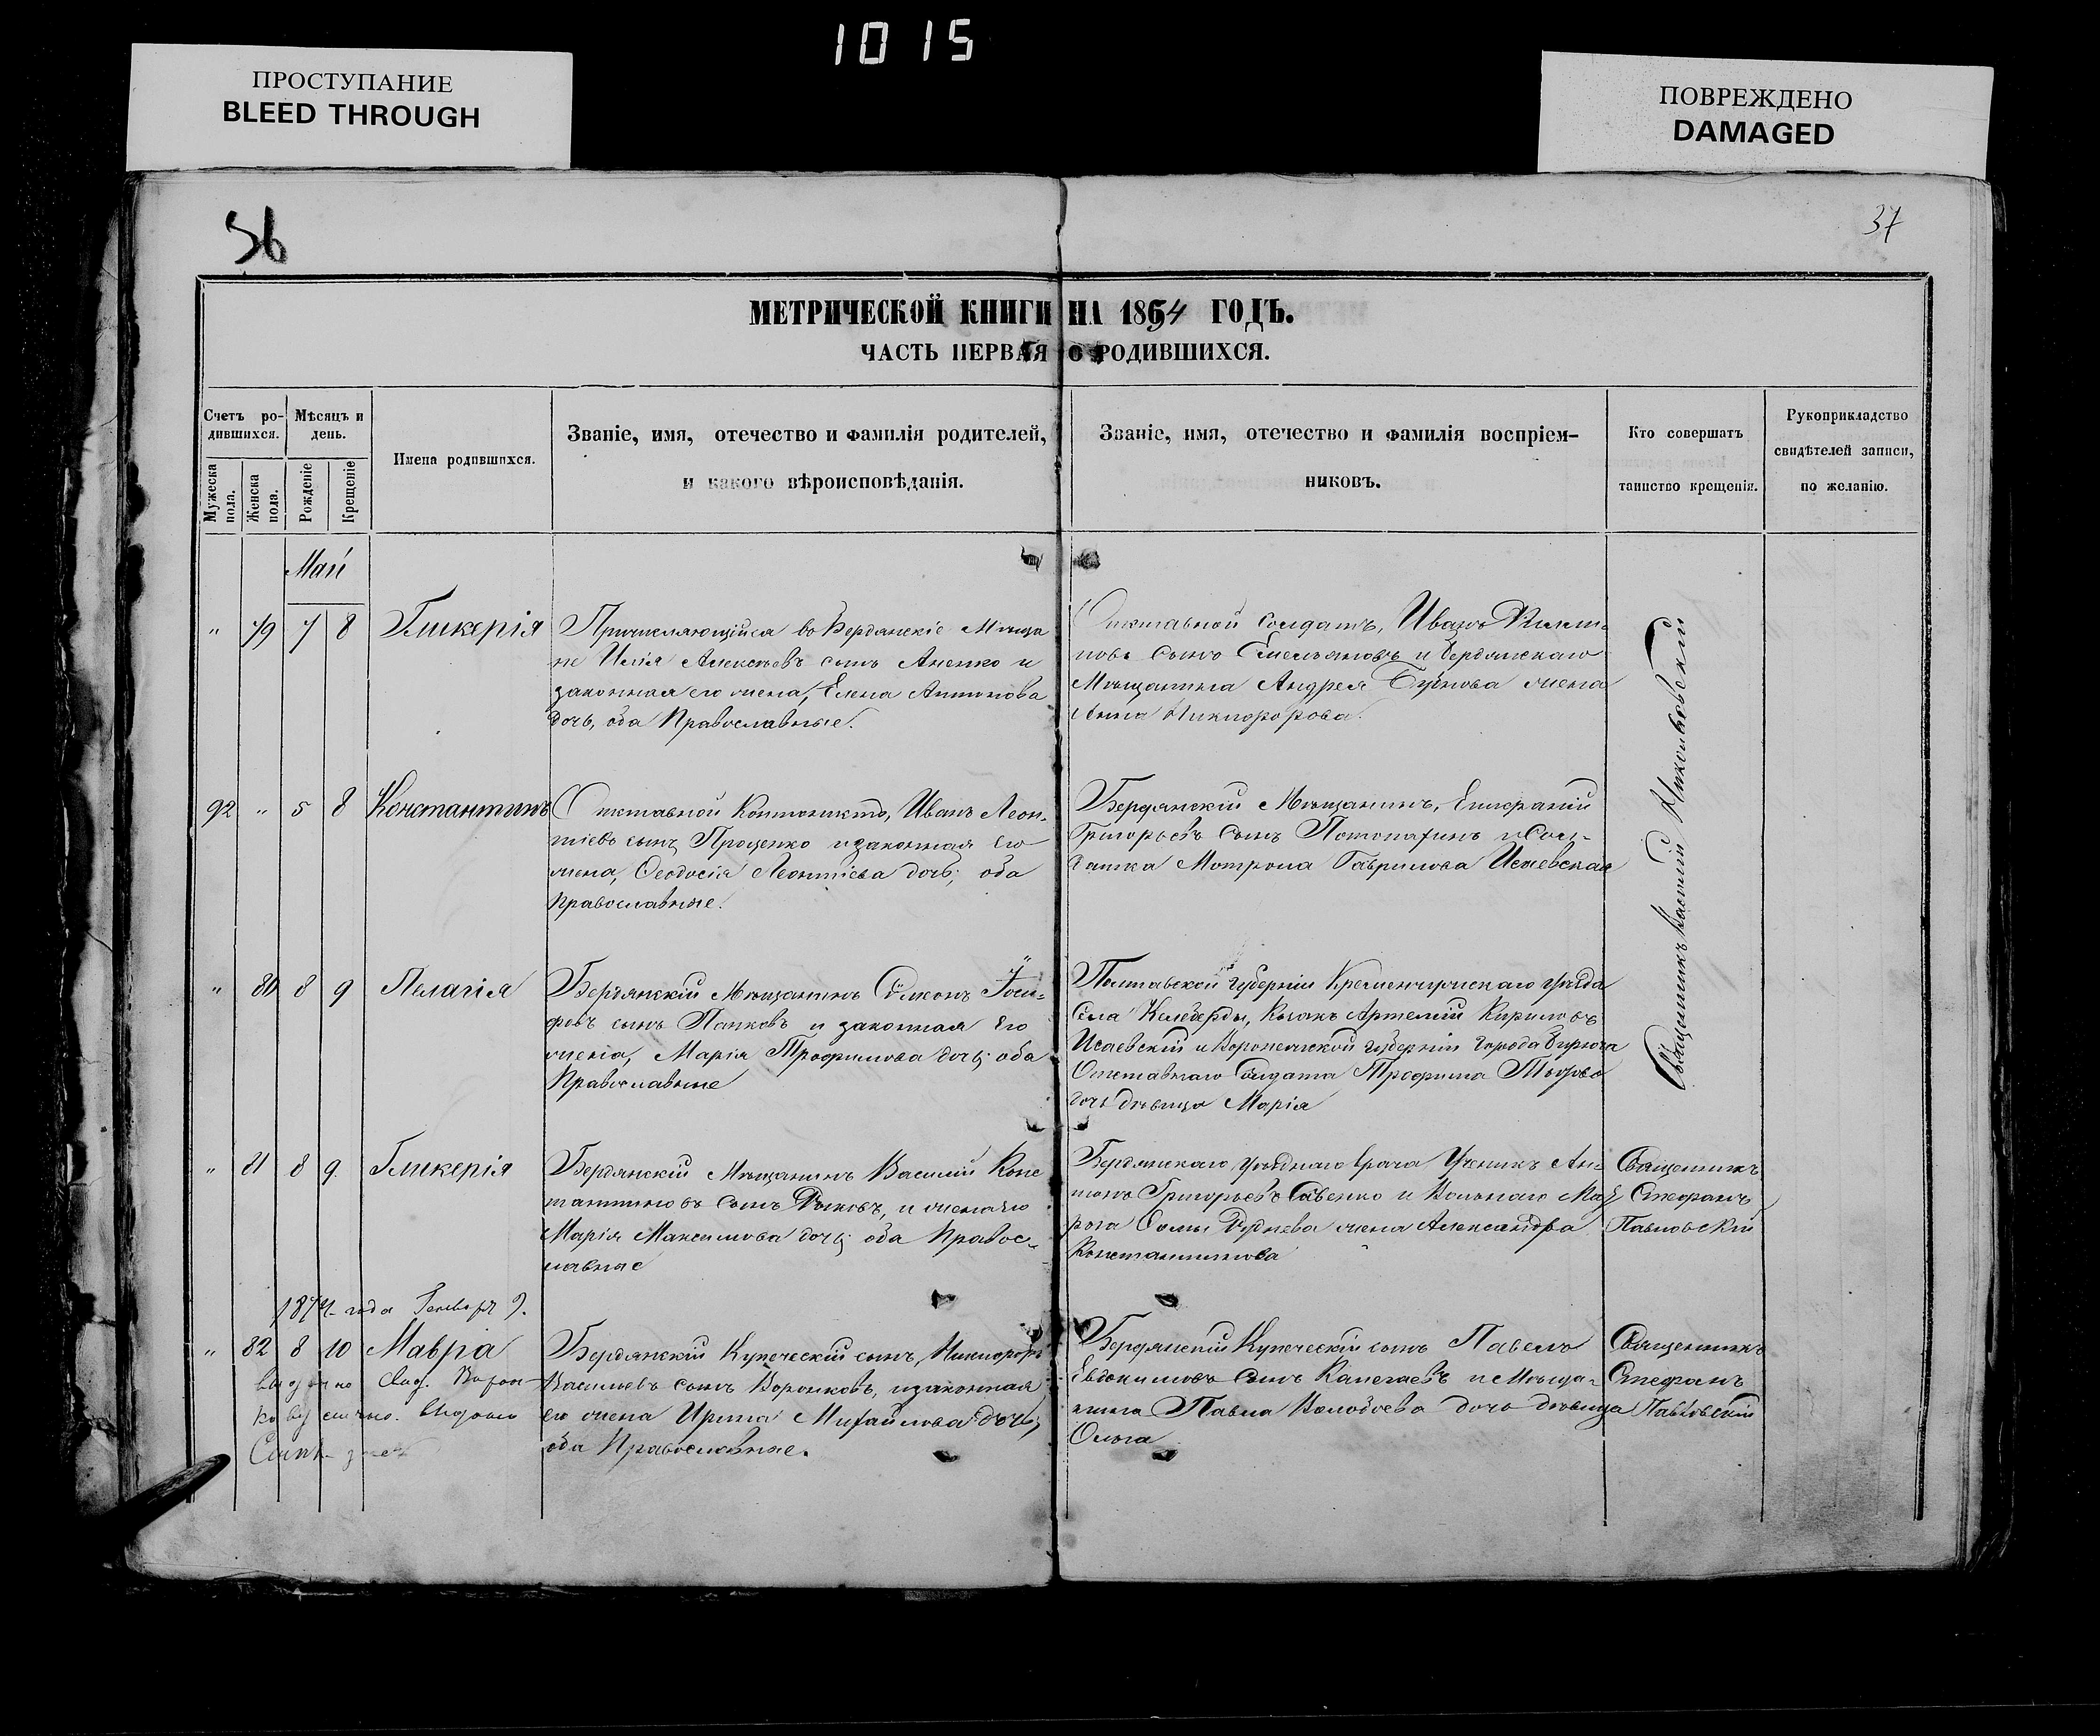 1015
ПРОСТУПАНИЕ
BLEED THROUGH
ПОВРЕЖДЕНО
DAMAGED
36
37
МЕТРИЧЕСКОЙ КНИГИ НА 1854 ГОДЪ.
ЧАСТЬ ПЕРВАЯ О РОДИВШИХСЯ.
Счетъ ро-
дившихся.
Мѣсяцъ и
день.
Мужеска
пола.
Женска
пола.
Рожденіе
Крещеніе
Имена родившихся.
Званіе, имя, отечество и фамилія родителей,
и какого вѣроисповѣданія.
Званіе, имя, отечество и фамилія воспріем-
никовъ.
Кто совершатъ
таинство крещенія.
Рукоприкладство
свидѣтелей записи,
по желанію.
Май
" 79 7 8 Гликерія
Причисляющійся въ Бердянскіе Мѣща
не Илія Алексѣевъ сынъ Аненко и
законная его жена, Елена Антонова
дочь, оба Православные.
Отставной солдатъ, Иванъ Филип-
повъ сынъ Емельяновъ и Бердянскаго
Мѣщанина Андрея жена
Анна Никифорова.
92 " 5 8 Константинъ
Отставной Контонистъ, Иванъ Леон-
тіевъ сынъ Проценко и законная его
жена, Феодосія Леонтіева дочь, оба
Православные.
Бердянскій Мѣщанинъ, Епифаній
Григорьевъ сынъ и Сол-
датка Мотрона Гаврилова Исаевская
Священникъ Василій Никольскій
" 80 8 9 Пелагія
Бердянскій Мѣщанинъ Симеонъ Іоси-
фовъ сынъ Панковъ и законная его
жена, Марія Трофимова дочь, оба
Православные
Полтавской губерніи Кременчугскаго уѣзда
Села Келеберды, Козакъ Артемій Кириловъ
Исаевскій и Воронежской губерніи города Бирюча
Отставнаго Солдата Трофима
дочь дѣвица Марія
" 81 8 9 Гликерія
Бердянскій Мѣщанинъ Василій Конс
тантиновъ сынъ Рыковъ, и жена его
Марія Максимова дочь, оба Правос-
лавные
Бердянскаго уѣзднаго врача Ученикъ Ан-
тонъ Григорьевъ Савенко и Вольнаго Мат-
роса Фомы Руднева жена Александра
Константинова
Священникъ
Стефанъ
Павловскій
1874 года Генваря 9.
" 82 8 10 Мавра
выдано Свид.
Бердянскій Купеческій сынъ, Никифоръ
Васильевъ сынъ Воронковъ, и законная
его жена Ирина Михайлова дочь,
оба Православные.
Бердянскій Купеческій сынъ Павелъ
Евдокимовъ сынъ и Мѣща-
нина Павла дочь дѣвица
Ольга
Священникъ
Стефанъ
Павловскій